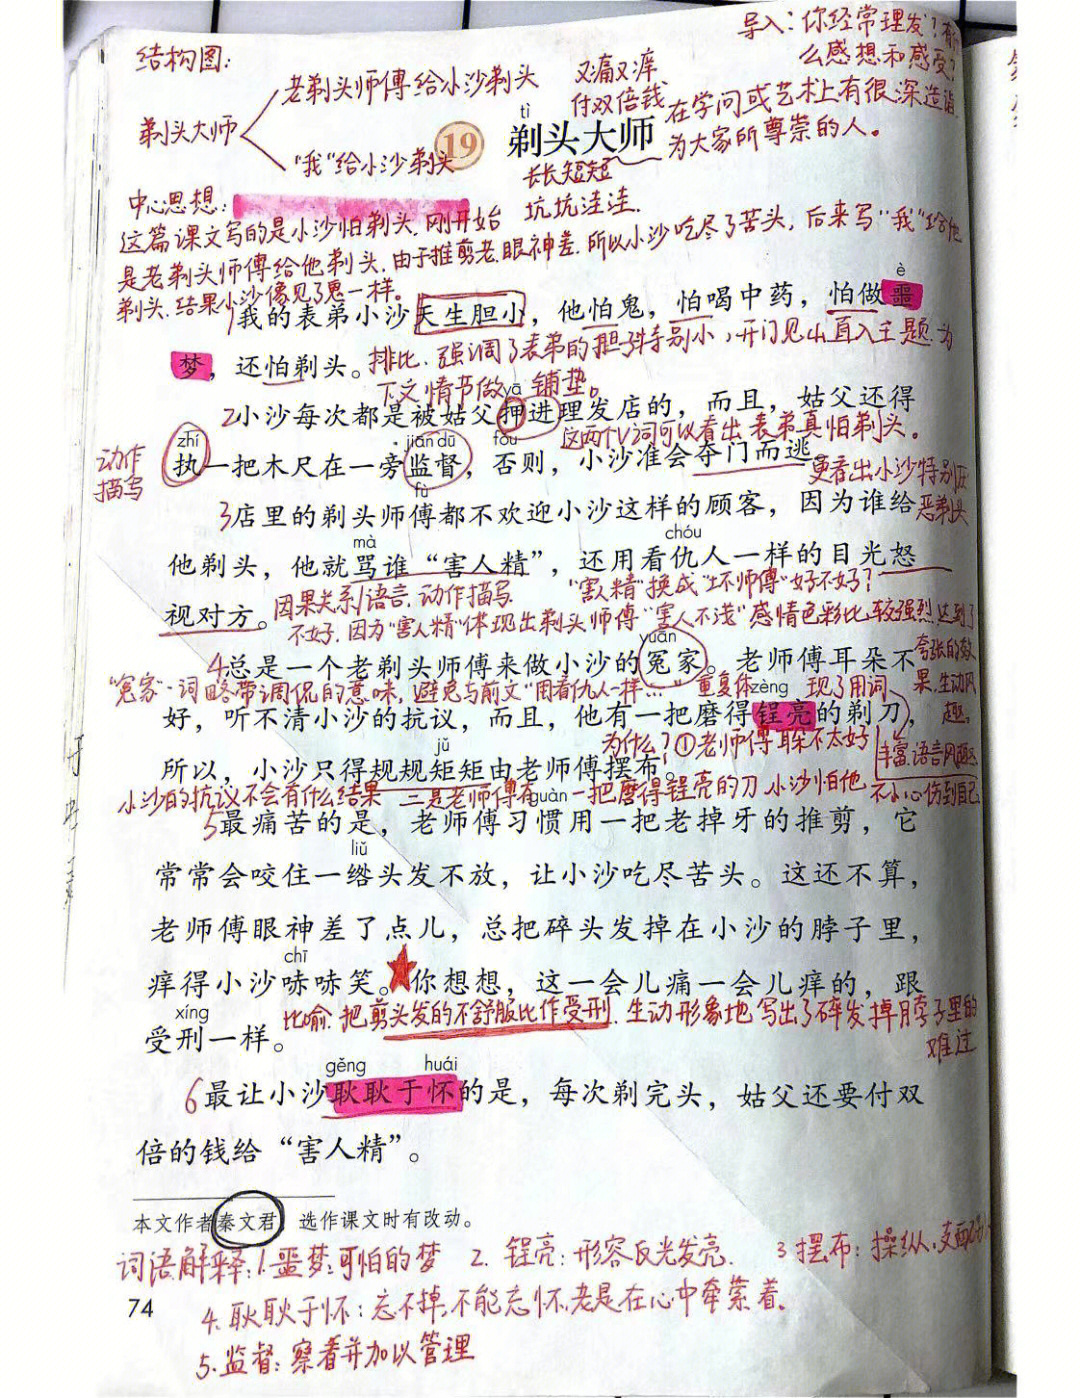 导入：你经常理发？有什
么感想和感受？
结构图：
老剃头师傅给小沙剃头
又痛又痒、
付双倍钱
剃头大师
"我"给小沙剃头
tì
19 剃头大师
在学问或艺术上有很深造诣，
为大家所尊崇的人。
长长短短
坑坑洼洼.
中心思想：
这篇课文写的是小沙怕剃头.刚开始
是老剃头师傅给他剃头.由于推剪老.眼神差.所以小沙吃尽了苦头，后来写"我"给他
剃头.结果小沙像见了鬼一样。
è
1我的表弟小沙天生胆小，他怕鬼，怕喝中药，怕做噩
梦，还怕剃头。
排比.强调了表弟的胆子特别小，开门见山直入主题.为
下文情节做铺垫。
yā
2小沙每次都是被姑父押进理发店的，而且，姑父还得
这两个V词可以看出表弟真怕剃头。
动作
描写
zhí jiān dū fǒu
执一把木尺在一旁监督，否则，小沙准会夺门而逃。
更看出小沙特别厌
恶剃头
fù
3店里的剃头师傅都不欢迎小沙这样的顾客，因为谁给
mà chóu
他剃头，他就骂谁“害人精”，还用看仇人一样的目光怒
视对方。
因果关系 语言.动作描写
"害人精"换成"坏师傅"好不好？
不好.因为"害人精"体现出剃头师傅"害人不浅"感情色彩比较强烈.达到了
夸张的效
果.生动风
趣。
yuān
4总是一个老剃头师傅来做小沙的冤家。老师傅耳朵不
"冤家"：词略带调侃的意味，避免与前文"用看仇人一样……"重复体现了用词
丰富.语言风趣
zèng
好，听不清小沙的抗议，而且，他有一把磨得锃亮的剃刀，
为什么？①老师傅耳朵不太好
jǔ
所以，小沙只得规规矩矩由老师傅摆布。
小沙的抗议不会有什么结果 二是老师傅有一把磨得锃亮的刀.小沙怕他
不小心伤到自己
guàn
5最痛苦的是，老师傅习惯用一把老掉牙的推剪，它
liǔ
常常会咬住一绺头发不放，让小沙吃尽苦头。这还不算，
老师傅眼神差了点儿，总把碎头发掉在小沙的脖子里，
chī
痒得小沙哧哧笑。你想想，这一会儿痛一会儿痒的，跟
xíng
受刑一样。
比喻.把剪头发的不舒服比作受刑.生动形象地写出了碎发掉脖子里的
难过
gěng huái
6最让小沙耿耿于怀的是，每次剃完头，姑父还要付双
倍的钱给“害人精”。
本文作者秦文君，选作课文时有改动。
词语解释：1.噩梦：可怕的梦 2. 锃亮：形容反光发亮. 3 摆布：操纵.支配
74
4.耿耿于怀：忘不掉.不能忘怀.老是在心中牵萦着。
5.监督：察看并加以管理